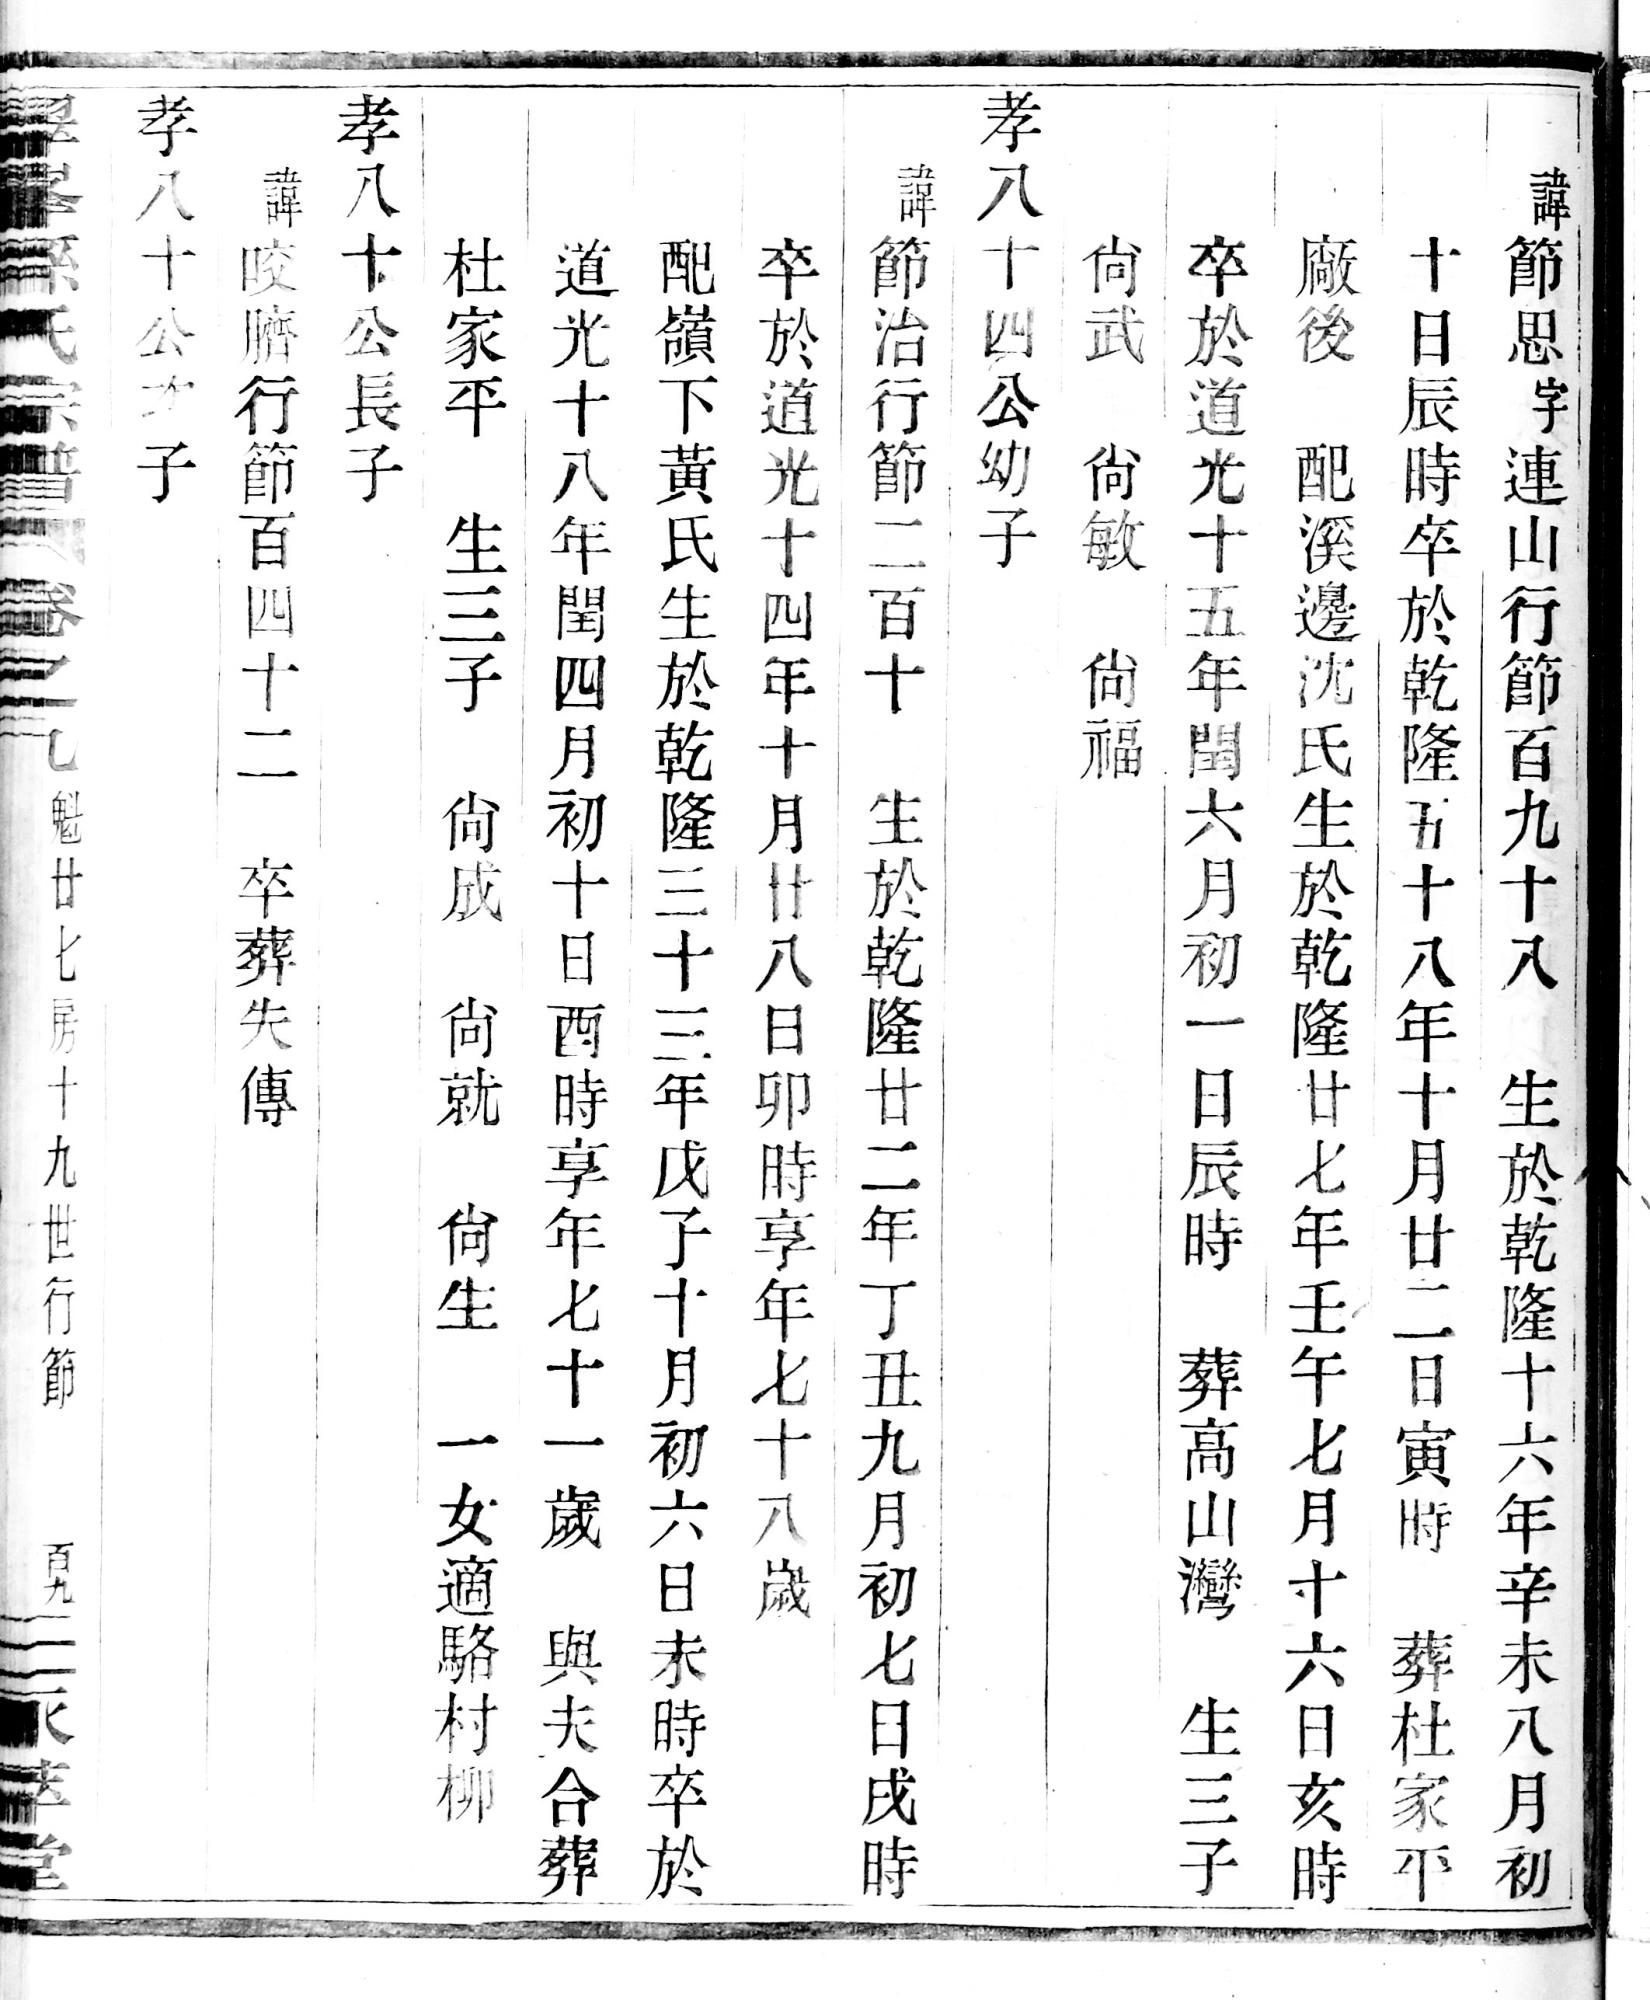 諱節思字連山行節百九十八　生於乾隆十六年辛未八月初
十日辰時卒於乾隆五十八年十月廿二日寅時　葬杜家平
廠後　配溪邊沈氏生於乾隆廿七年壬午七月十六日亥時
卒於道光十五年閏六月初一日辰時　葬高山灣　生三子
尙武　尙敏　尙福
孝八十四公幼子
諱節治行節二百十　生於乾隆廿二年丁丑九月初七日戌時
卒於道光十四年十月廿八日卯時享年七十八歲
配嶺下黃氏生於乾隆三十三年戊子十月初六日未時卒於
道光十八年閏四月初十日酉時享年七十一歲　與夫合葬
杜家平　生三子　尙成　尙就　尙生　一女適駱村柳
孝八十公長子
諱咬臍行節百四十二　卒葬失傳
孝八十公次子
孫氏宗譜　卷之　魁廿七房十九世行節　百九　堂